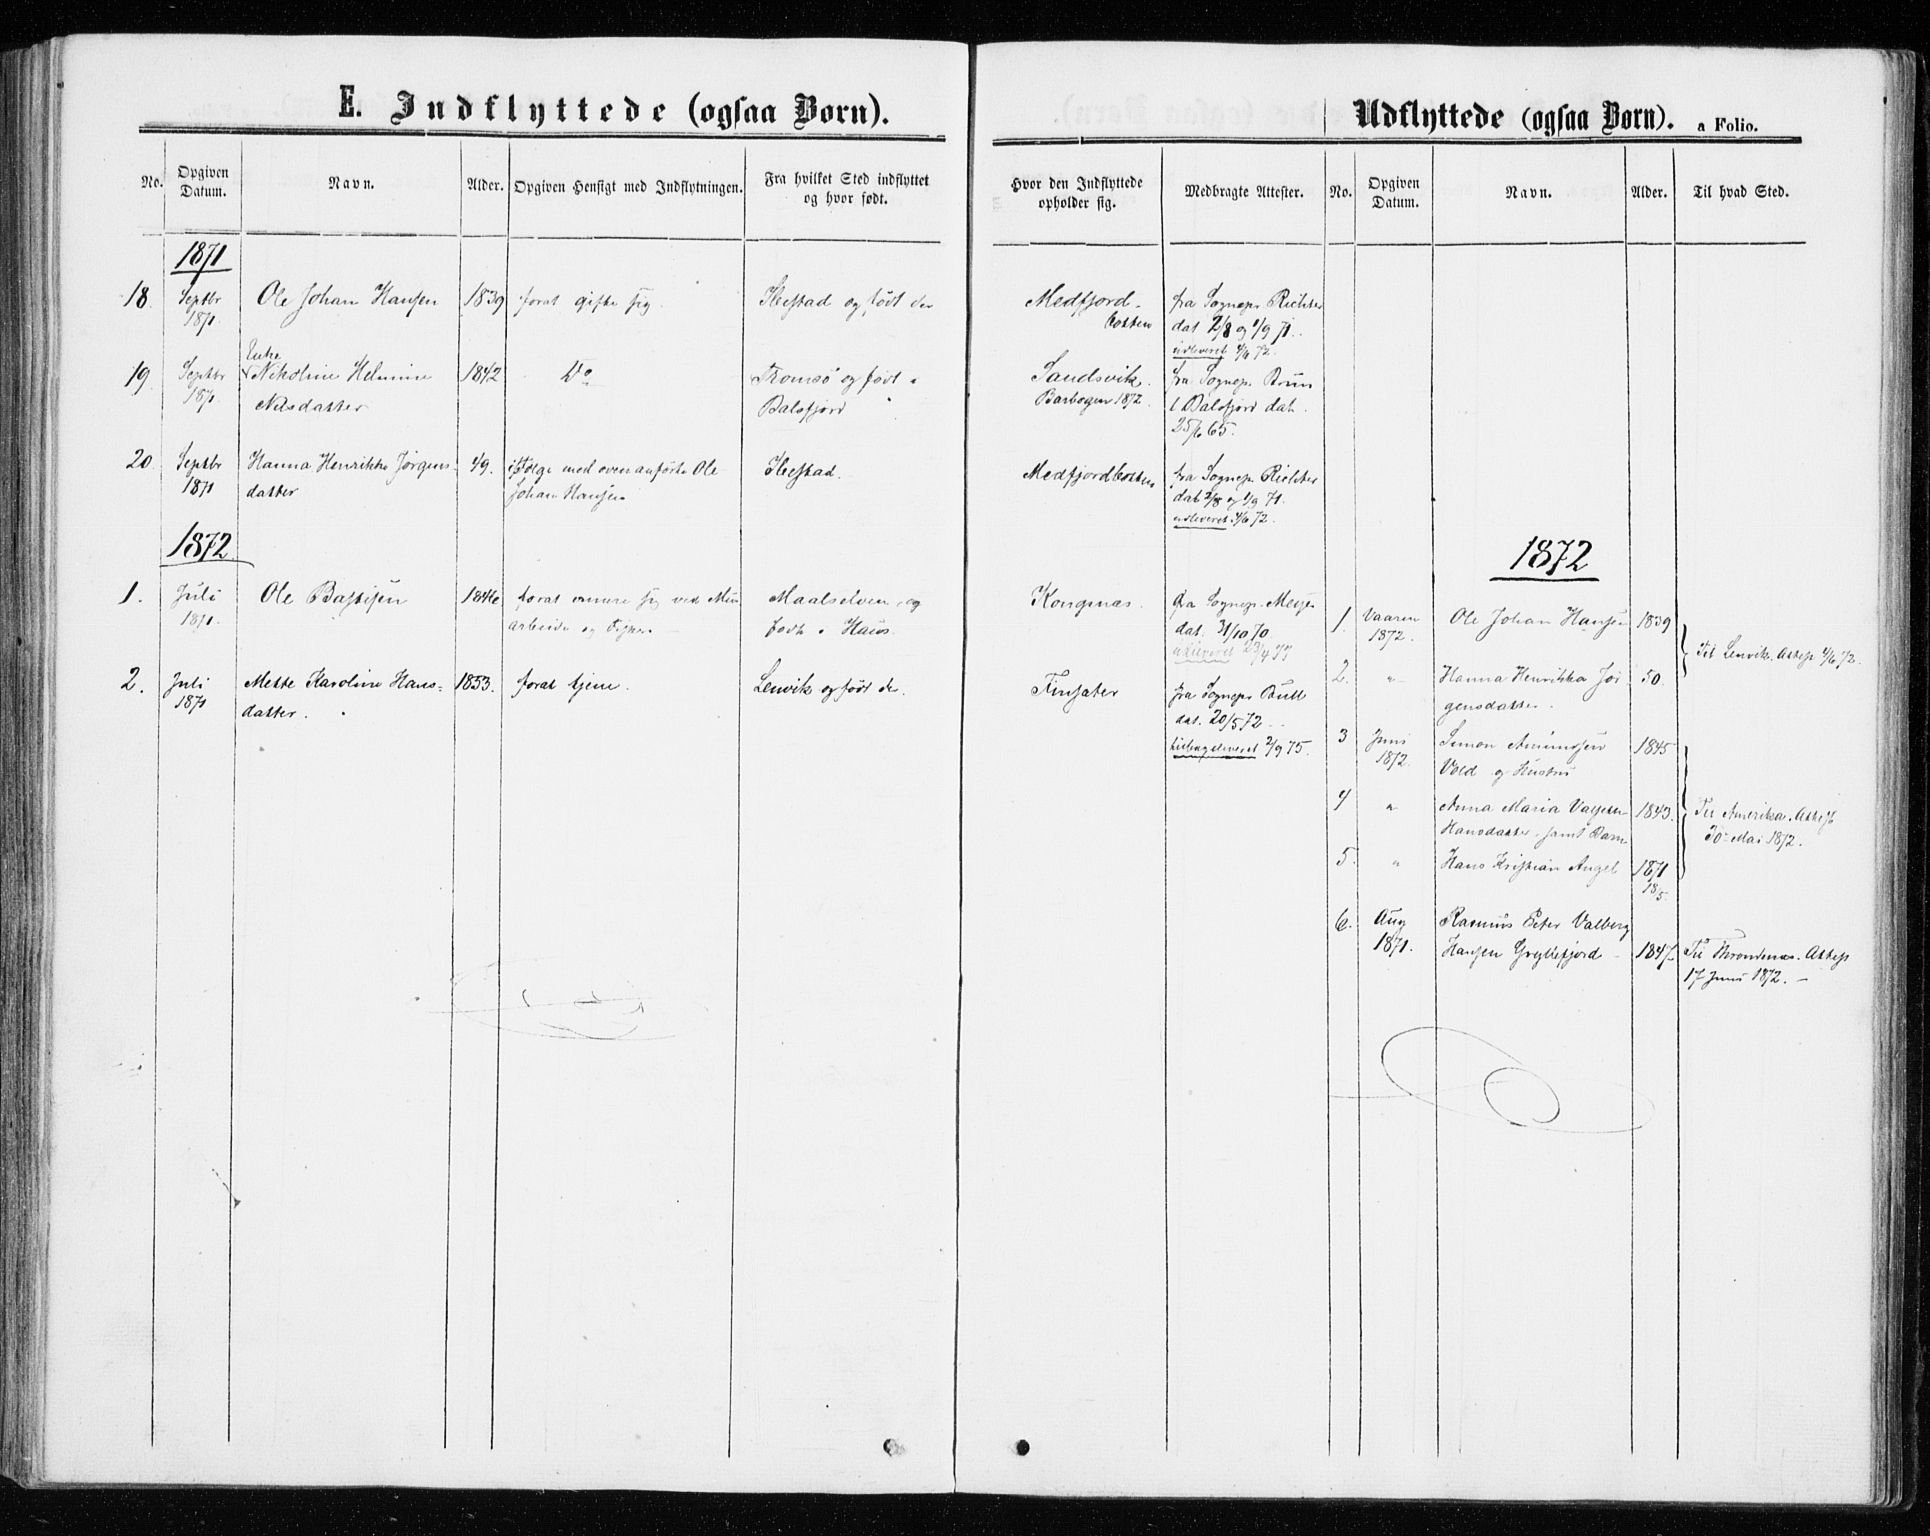 E. Indflyttede (ogsaa Børn).
No.
Opgiven Datum.
Navn.
Alder.
Opgiven Hensigt med Indflytningen.
Fra hvilket Sted indflyttet og hvor født.
1871
18. Septbr 1871. Ole Johan Hansen 1839 forat gifte sig. Ibestad og født der
19. Septbr 1871. Enke Nikoline Helmine Nilsdatter 1842 Do Tromsø og født i Balsfjord
20. Septbr 1871 Hanna Henrikke Jørgens- datter 49. i Følge med ovenanførte Ole Johan Hansen Ibestad.
1872
1. Juli 1871. Ole Bastisen 1846 forat ernære sig ved arbeide og Maalselven og født i Haus.
2. Juli 1871 Mette Karoline Hans- datter. 1853. forat tjene. Lenvik og født der.
Udflyttede (ogsaa Børn). a Folio.
Hvor den Indflyttede opholder sig.
Medbragte Attester.
No.
Opgiven Datum.
Navn.
Alder.
Til hvad Sted.
Medfjord- botten fra Sognepr. Richter dat 2/8 og 1/9 71. udleveret 4/6 72.
Sandsvik. Barbogen 1872. fra Sognepr. Brun i Balsfjord dat. 25/6 65.
Medfjordbotten fra Sognepr. Richter dat 2/8 og 1/9 71. udleveret 4/6 72.
Kongsnas. fra Sognepr. dat. 31/10 70 udleveret 23/4 77
Finsater fra Sognepr Bull dat. 20/5 72. tilbageleveret 2/9 75.
1872
1. Vaaren 1872. Ole Johan Hansen 1839
2. " Hanna Henrikka Jør- gensdatter. 50.
Til Lenvik. Attest 4/6 72.
3 Juni 1872. Simon Amundsen Vold og Hustru 1845
4 " Anna Maria Hansdatter, samt Barn 1843.
5. " Hans Kristian Angel 1871 18/5.
Til Amerika. Attest 30te Mai 1872.
6. Aug 1871. Rasmus Peter Valberg Hansen Gryllefjord 1847. Til Throndenas. Attest 17 Juni 1872.